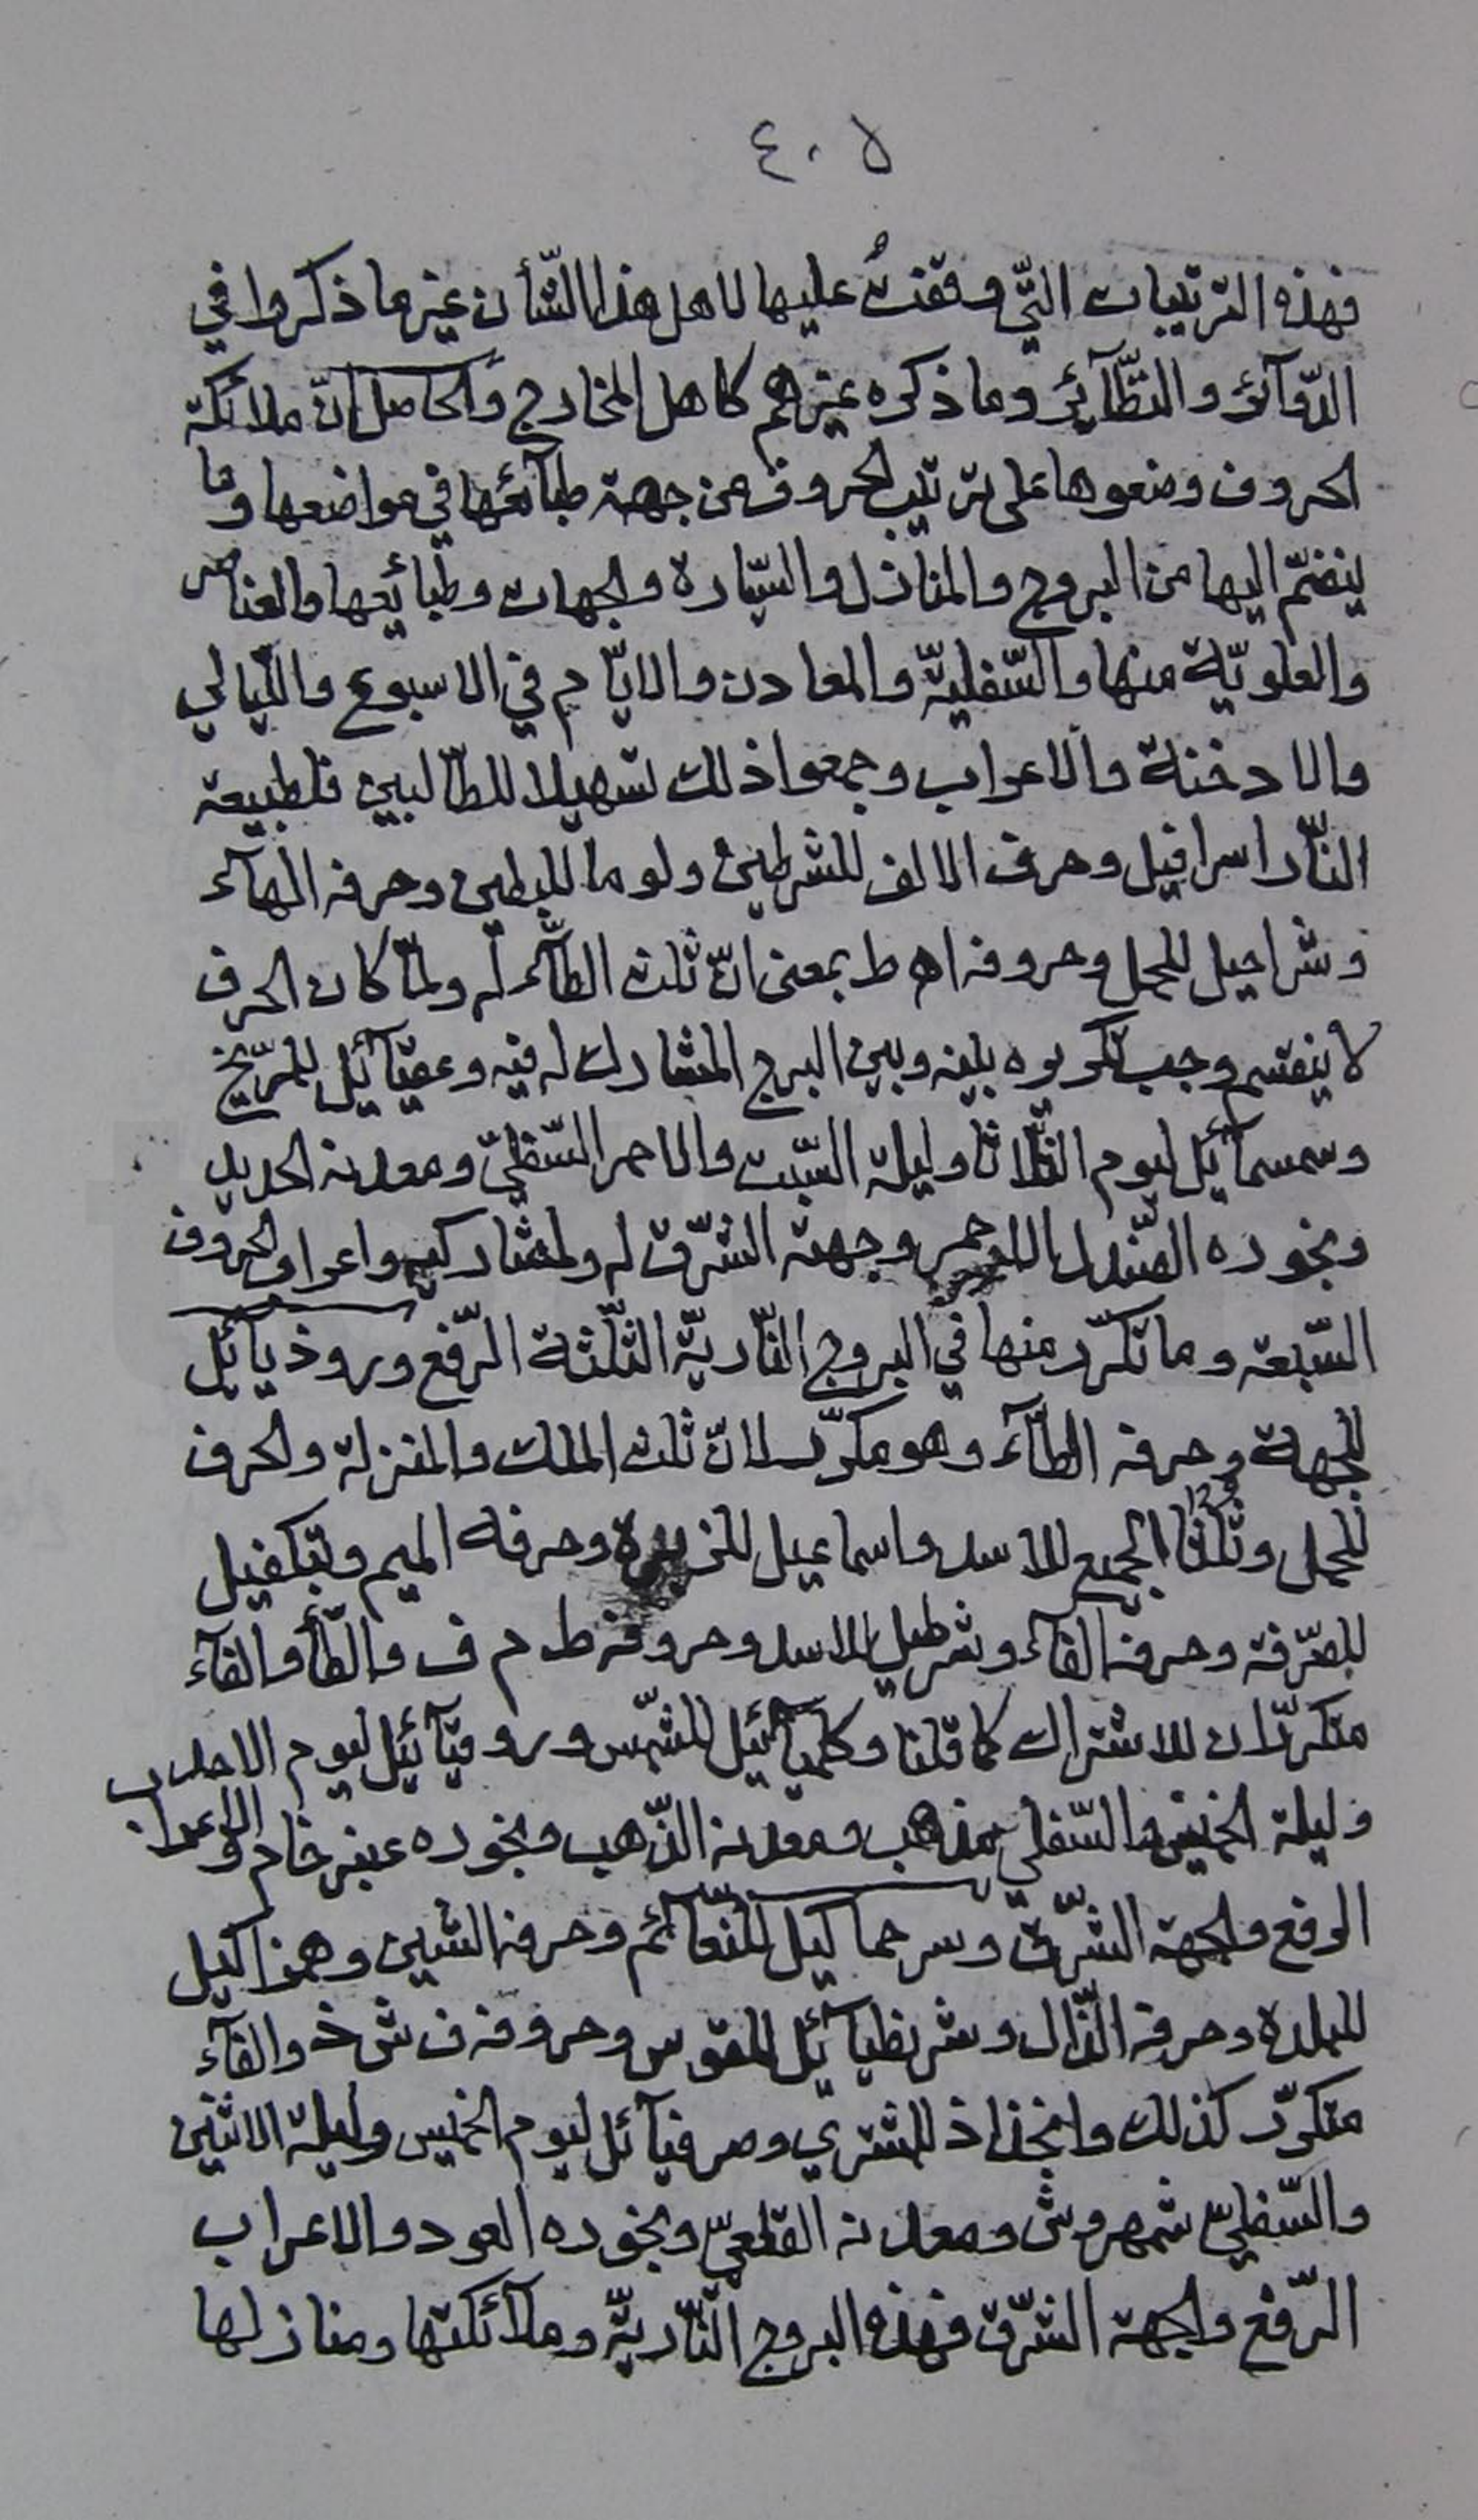 ٤٠٥
فهذه الترتيبات الّتي وقفتُ عليها لاهل هذا الشّأن غير ما ذكروا في
الدّوآئر والنّظآئر وما ذكره غيرهم كاهل المخارج والحاصل انّ ملائكة
الحروف وضعوها على ترتيب الحروف من جهة طبآئعها في مواضعها وما
ينضمّ اليها من البروج والمنازل والسّيّارة والجهات وطبائعها والعناصر
والعلويّة منها والسّفليّة والمعادن والايّام في الاسبوع واللّيالي
والادخنة والاعراب وجمعوا ذلك تسهيلا للطّالبين فلطبيعة
النّار اسرافيل وحرف الالف للشرطين ولوما للبطين وحرفه الهآء
وشراحيل للحمل وحروفه ا ه ط بمعنى انّ ثلث الطّآء له ولمّا كان الحرف
لا ينقسم وجب تكريره بينه وبين البرج المشارك له فيه وعقيآئيل للمرّيخ
وسمسمآئيل ليوم الثّلاثا وليلة السّبت والاحمر السّفليّ ومعدنه الحديد
وبخوره الصّندل الاحمر وجهة الشّرق له ولمشاركيه واعراب الحروف
السّبعة وما تكرّر منها في البروج النّاريّة الثّلثة الرّفع وروذيآئيل
للجبهة وحرفه الطّآء وهو مكرّر لانّ ثلث الملك والمنزلة والحرف
للحمل وثلثا الجميع للاسد واسماعيل للزبرة وحرفه الميم وتبكفيل
للصّرفة وحرفه الفآء وشرطيل للاسد وحروفه ط م ف والطّآء والفآء
متكرّران للاشتراك كما قلنا وكلميآئيل للشّمس وروقيآئيل ليوم الاحد
وليلة الخميس والسّفلي مذهب ومعدنه الذّهب وبخوره عنبر خام والاعراب
الرفع ولجهة الشّرق وسرحماكيل للنّعآئم وحرفه الشّين وهمزاكيل
للبلدة وحرفه الذّال وشريطيآئيل للقوس وحروفه ف ش ذ والفآء
متكرّر كذلك وانخذاذ للمشتري وصرفيآئل ليوم الخميس وليلة الاثنين
والسّفليّ شمهروش ومعدنه القلعيّ وبخوره العود والاعراب
الرّفع ولجهة الشّرق فهذه البروج النّاريّة وملآئكتها ومنازلها